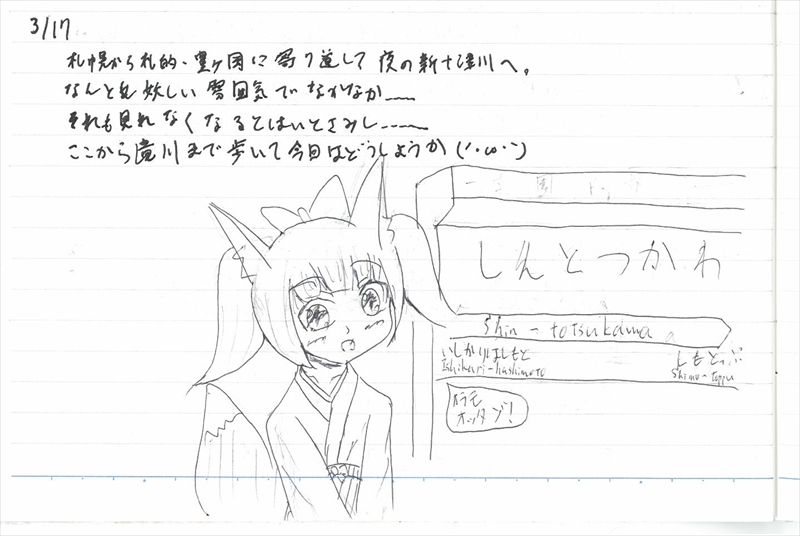 3/17
札幌から札的・豊ヶ岡に寄り道して 夜の新十津川へ。
なんとも妖しい雰囲気でなかなか……
それも見れなくなるとはいとさみし……
ここから滝川まで歩いて今日はどうしようか(´・ω・`)
しんとつかわ
Shin-totsukawa
いしかりはしもと しもとっぷ
Ishikari-hashimoto Shimo-toppu
オラモ
オッタゾ!